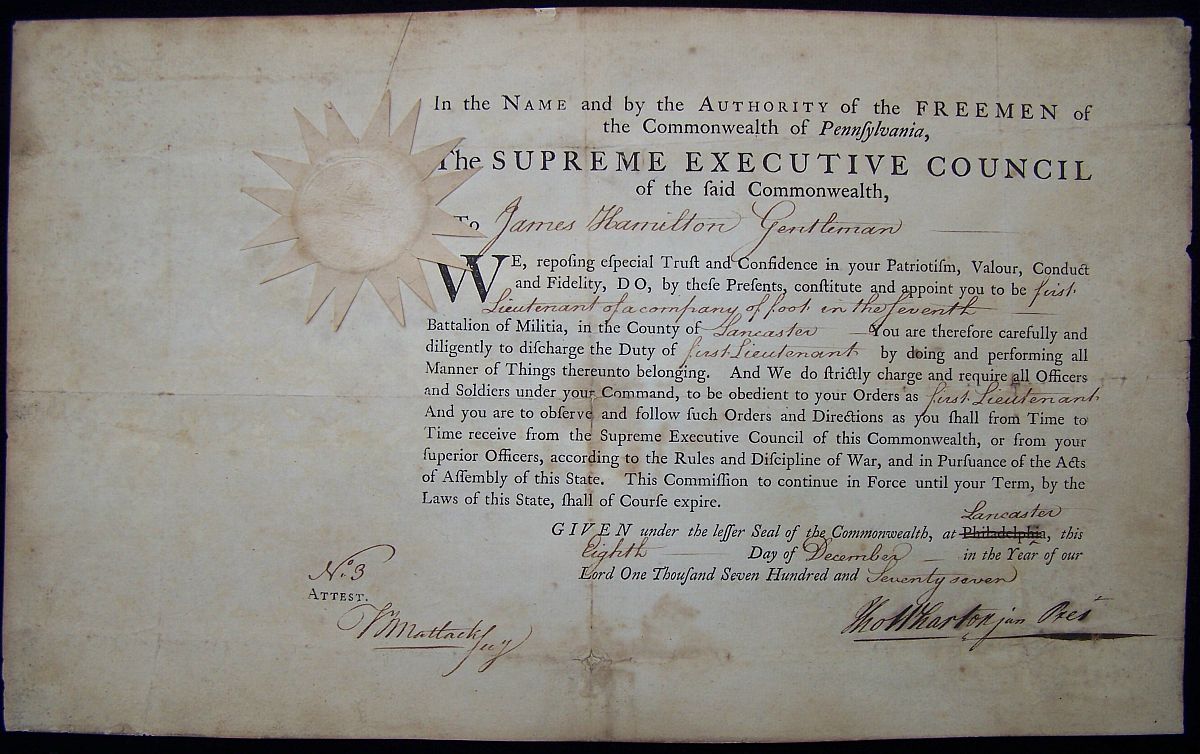 In the NAME and by the AUTHORITY of the FREEMEN of
the Commonwealth of Pennſylvania,
The SUPREME EXECUTIVE COUNCIL
of the ſaid Commonwealth,
To James Hamilton Gentleman
WE, repoſing eſpecial Truſt and Confidence in your Patriotiſm, Valour, Conduct
and Fidelity, DO, by theſe Preſents, conſtitute and appoint you to be first
Lieutenant of a company of foot in the Seventh
Battalion of Militia, in the County of Lancaster You are therefore carefully and
diligently to diſcharge the Duty of first Lieutenant by doing and performing all
Manner of Things thereunto belonging. And We do ſtrictly charge and require all Officers
and Soldiers under your Command, to be obedient to your Orders as first Lieutenant
And you are to obſerve and follow ſuch Orders and Directions as you ſhall from Time to
Time receive from the Supreme Executive Council of this Commonwealth, or from your
ſuperior Officers, according to the Rules and Diſcipline of War, and in Purſuance of the Acts
of Aſſembly of this State. This Commiſſion to continue in Force until your Term, by the
Laws of this State, ſhall of Courſe expire.
Lancaster
GIVEN under the leſſer Seal of the Commonwealth, at Philadelphia, this
Eighth Day of December in the Year of our
Lord One Thouſand Seven Hundred and Seventy seven
No. 3
ATTEST.
T Matlack Secy
Tho Wharton jun Pres't